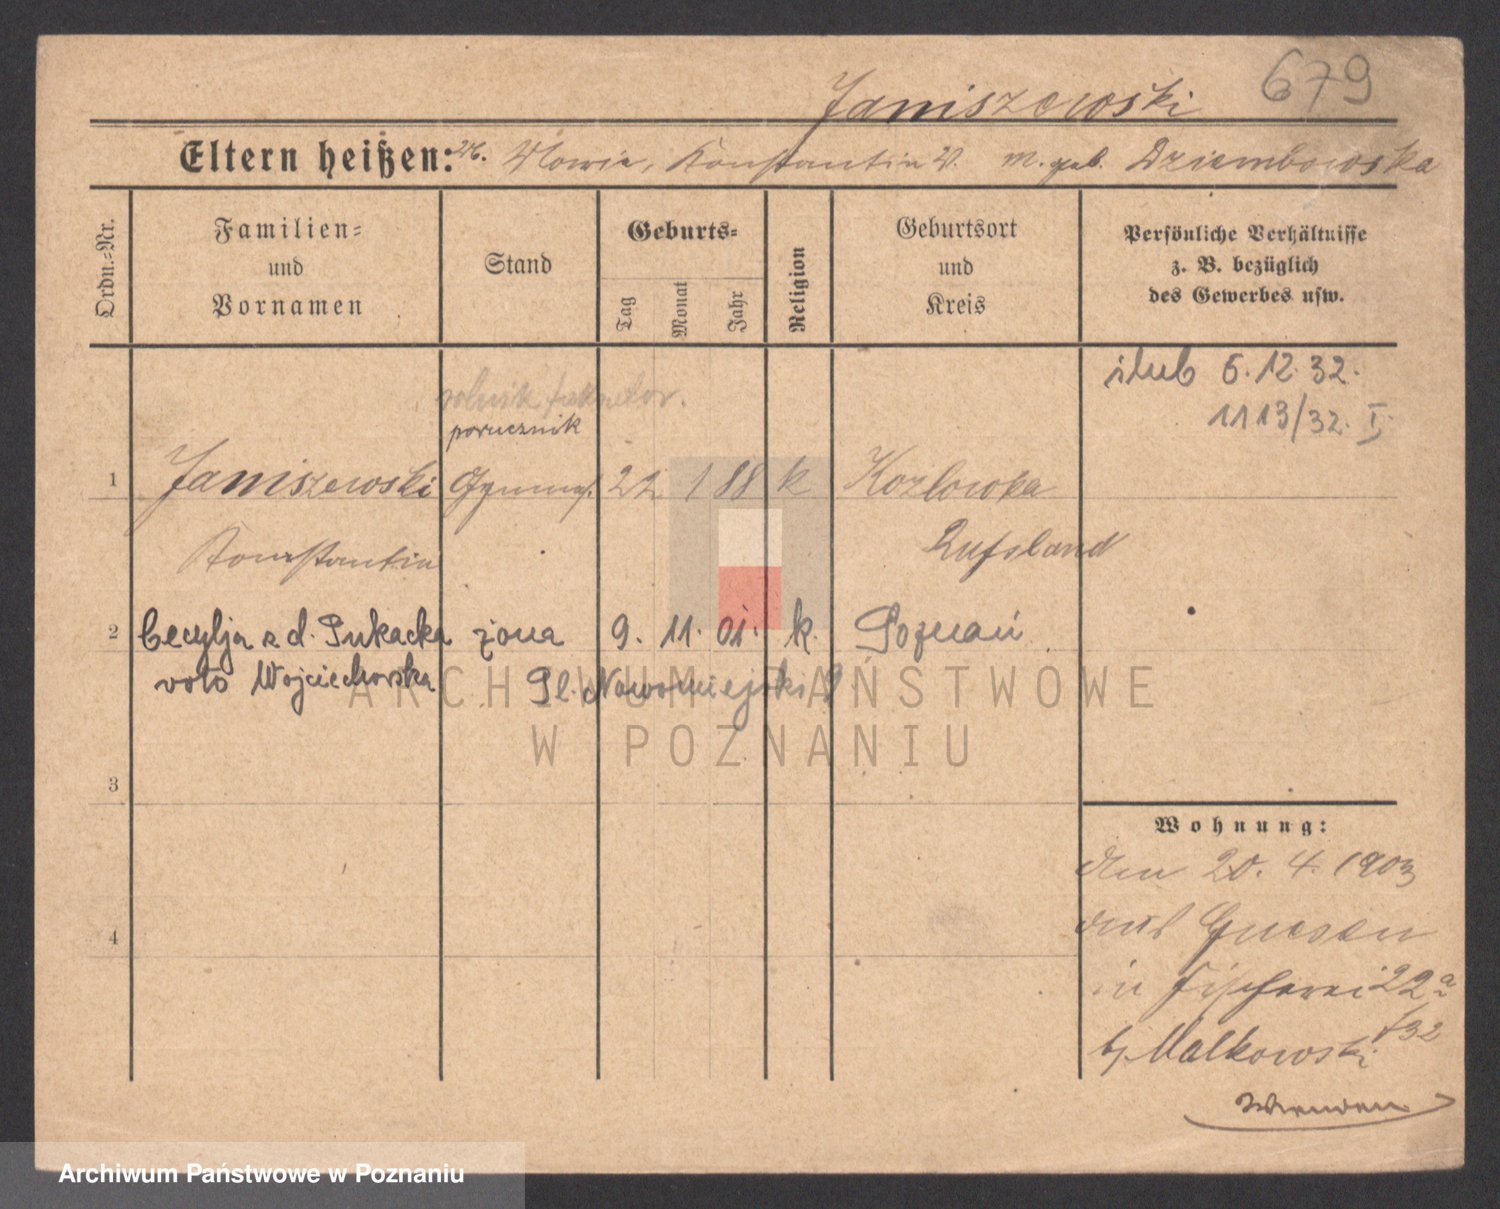 Janiszewski 679
Eltern heißen: Konstantin V. M. geb. Dziembowska
Ordn.-Nr.
Familien-
und
Vornamen
Stand
Geburts-
Tag
Monat
Jahr
Religion
Geburtsort
und
Kreis
Persönliche Verhältnisse
z. B. bezüglich
des Gewerbes usw.
ślub 6.12.32.
1113/32. I
rolnik
porucznik
1 Janiszewski 22 1 88 k Kozlowka
Konstantin Rußland
2 Cecylja z d. Pukacka żona 9. 11. 01. k. Poznań
voto Wojciechowska Pl. Nowomiejski
3
4
Wohnung:
den 20. 4. 1903
aus Gnesen
in Fischerei 22a
b/ Malkowski /32
Wenden
ARCHIWUM PAŃSTWOWE
W POZNANIU
Archiwum Państwowe w Poznaniu